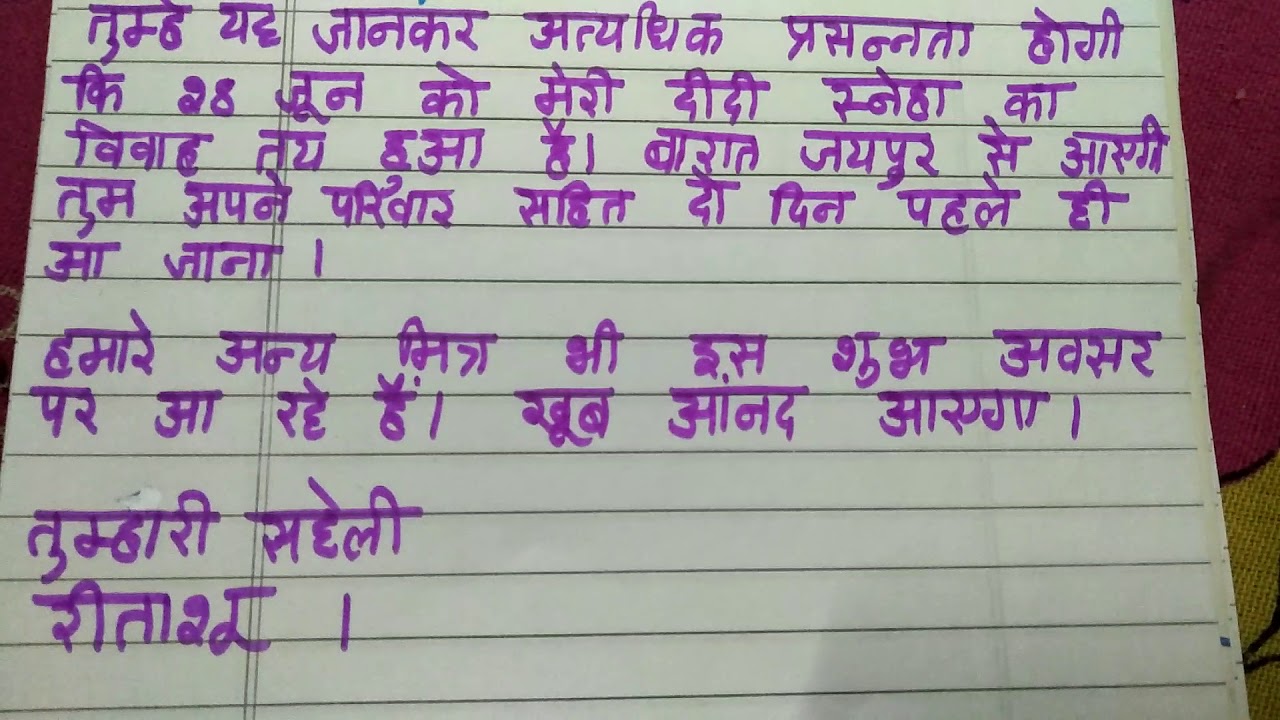 तुम्हे यह जानकर अत्यधिक प्रसन्नता होगी
कि २८ जून को मेरी दीदी स्नेहा का
विवाह तय हुआ है। बारात जयपुर से आएगी
तुम अपने परिवार सहित दो दिन पहले ही
आ जाना ।
हमारे अन्य मित्र भी इस शुभ अवसर
पर आ रहे हैं। खूब आंनद आएगा ।
तुम्हारी सहेली